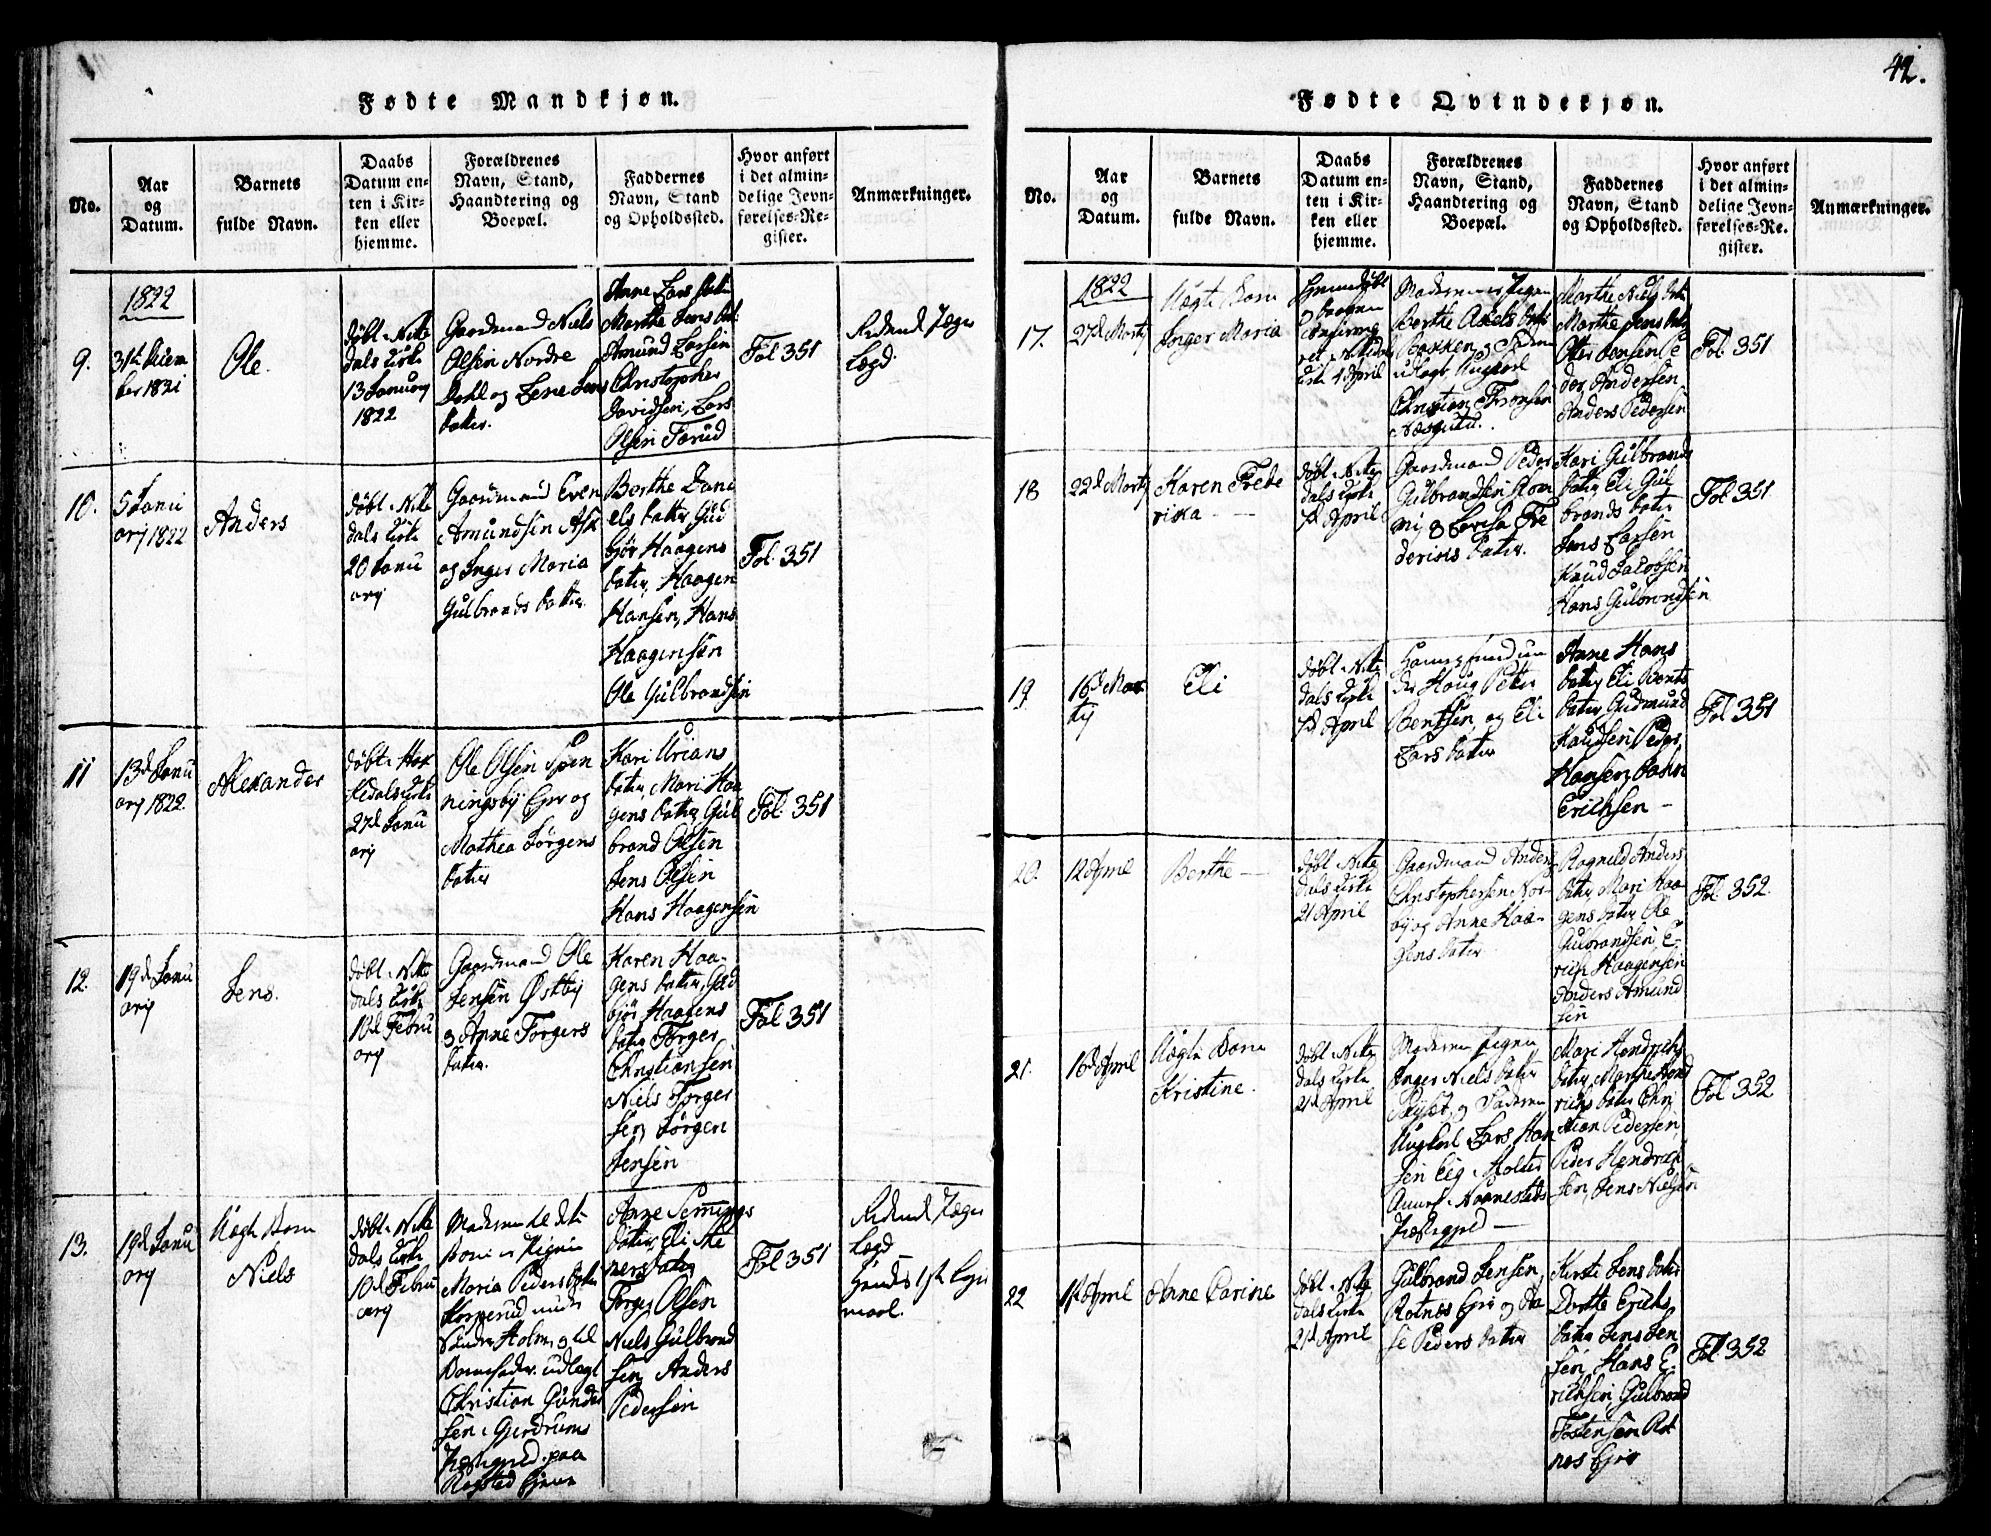 42.
Fødte Mandkjøn.
No.
Aar
og
Datum.
Barnets
fulde Navn.
Daabs
Datum en-
ten i Kir-
ken eller
hjemme.
Forældrenes
Navn, Stand,
Haandtering og
Boepæl.
Faddernes
Navn, Stand
og Opholdssted.
Hvor anført
i det almin-
delige Jevn-
førelses-Re-
gister.
Anmærkninger.
1822
9.
31te Decem
ber 1821
Ole.
døbt i Nitte
dals Kirke
13 Januarij
1822
Gaardmand Niels
Olsen Nordre
Dahl og Lene Jens
datter.
Anne Lars datter
Marthe Jens dat
Amund Larsen
Christopher
Davidsen, Lars
Olsen Tørud
Fol 351
10.
5 Janu
arij 1822
Anders
døbt i Nitte
dals Kirke
20 Janu
arij
Gaardmand Even
Amundsen Ask
og Inger Maria
Gulbrands datter
Berthe Dani
els datter, Gud
bjør Haagens
datter, Haagen
Hansen, Hans
Haagensen
Ole Gulbrandsen
Fol. 351
11
13d Janu
arij 1822.
Alexander
døbt i Hak
kedals Kirke
27d Janu
arij
Ole Olsen Spen
ningsby Eyer og
Mathea Jørgens
datter
Kari Urians
datter, Mari Haa
gens datter, Gul
brand Olsen
Jens Olsen
Hans Haagensen
Fol. 351
12.
19d Janu
arij
Jens.
døbt i Nitte
dals Kirke
10d Febru
arij
Gaardmand Ole
Jensen Østby
og Anne Torgers
datter.
Karen Haa-
gens datter, Gud
bjør Haagens
datter, Torger
Christiansen
Niels Torger
sen, Jørgen
Jensen
Fol 351
13.
19d Janu
arij
Uægte Barn
Niels
døbt i Nitte
dals Kirke
10d Febru
arij
Moderen til dette
Barn er Pigen
Maria Peders datter
under
Søndre Holm, og til
Barnefader udlagt
Christian Gunder
sen i Gjerdrums
Præstegjed. paa
Anne Semmings
datter, Eli
datter
Torger Olsen
Niels Gulbrand
sen, Anders
Pedersen
Fol 351
maal.
Fødte Qvindekjøn.
No.
Aar
og
Datum.
Barnets
fulde Navn.
Daabs
Datum en-
ten i Kir-
ken eller
hjemme.
Forældrenes
Navn, Stand,
Haandtering og
Boepæl.
Faddernes
Navn, Stand
og Opholdssted.
Hvor anført
i det almin-
delige Jevn-
førelses-Re-
gister.
Anmærkninger.
1822
17.
27d Martij
Uægte Barn
Inger Maria
Hjemmedøbt
Kirke 4 April
Moderen er Pigen
Berthe Axels datter
Bakken og Faderen
udlagt Ungkarl
Christian Thronsen
Marthe Niels datter
Marthe Jens datter
Otter Jensen Pe
der Andersen
Anders Pedersen
Fol. 351
18
22d Martij
Karen Frede
rika
døbt i Nitte
dals Kirke
7d April
Gaardmand Peder
Gulbrandsen
og Lovisa Fre
derichs datter.
Kari Gulbrands
datter Eli Gul
brands datter
Jens Larsen
Knud Jacobsen
Hans Gulbrandsen
Fol. 351
19
16d Mar
tij
Eli
døbt i Nitte
dals Kirke
7d April
Huusmand un
der Houg Peter
Bentsen, og Eli
Lars datter
Anne Hans
datter, Eli Bents
datter, Gudmund
Knudsen Peder
Hansen
Erichsen
Fol 351
20.
12 April
Berthe
døbt i Nitte
dals Kirke
21 April
Gaardmand Anders
Christophersen Nor-
by og Anne Haa-
gens datter
Ragnild Anders
datter, Mari Haa-
gens datter, Ole
Gulbrandsen, E-
rich Haagensen
Anders Amund
sen
Fol 352.
21.
16d April
Uægte Barn
Kristine.
døbt i Nitte
dals Kirke
21d April
Moderen Pigen
Inger Niels datter
og Faderen
Ungkarl Lars Han
sen
Præstegjed
Mari Hendrichs
datter, Marthe Hend
richs datter Chri
stian Pedersen,
Peder Hendrich
sen, Jens Nielsen
Fol 352
22
April
Anne Carine
døbt i Nitte
dals Kirke
21d April
Gulbrand Jensen
Rotnes Eyer og Aa
se Peders datter
Kirsti Jens datter
Dorthe Erichs
datter, Jens Jen
sen, Hans E-
richsen, Gulbrand
Tostensen Rot
nes Eyer
Fol 352